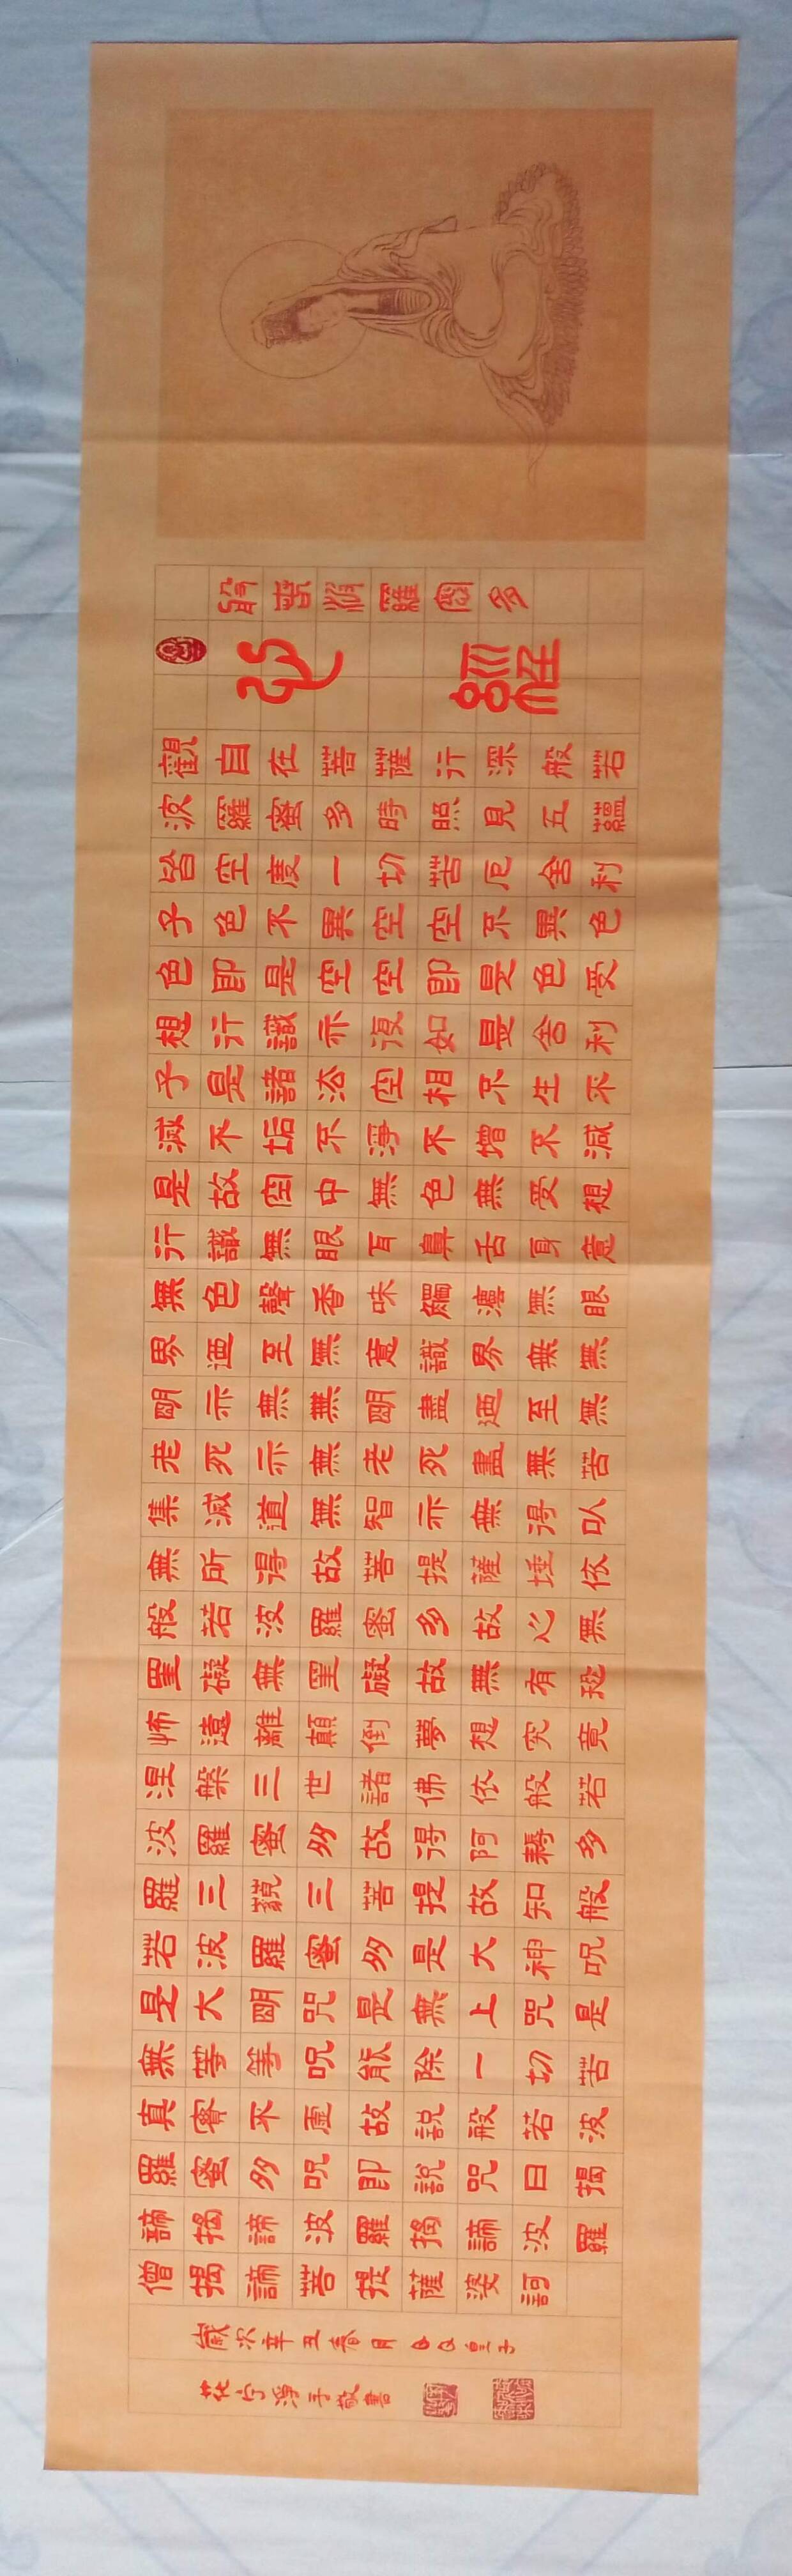 般若波羅蜜多
心經
觀自在菩薩行深般若
波羅蜜多時照見五蘊
皆空度一切苦厄舍利
子色不異空空不異色
色即是空空即是色受
想行識亦復如是舍利
子是諸法空相不生不
滅不垢不淨不增不減
是故空中無色無受想
行識無眼耳鼻舌身意
無色聲香味觸灋無眼
界迺至無意識界無無
明亦無無明盡迺至無
老死亦無老死盡無苦
集滅道無智亦無得以
無所得故菩提薩埵依
般若波羅蜜多故心無
罣礙無罣礙故無有恐
怖遠離顛倒夢想究竟
涅槃三世諸佛依般若
波羅蜜多故得阿耨多
羅三藐三菩提故知般
若波羅蜜多是大神呪
是大明咒是無上咒是
無等等呪能除一切苦
真實不虛故說般若波
羅蜜多呪即說咒曰揭
諦揭諦波羅揭諦波羅
僧揭諦菩提薩婆訶
歲次辛丑春月
淨手敬書